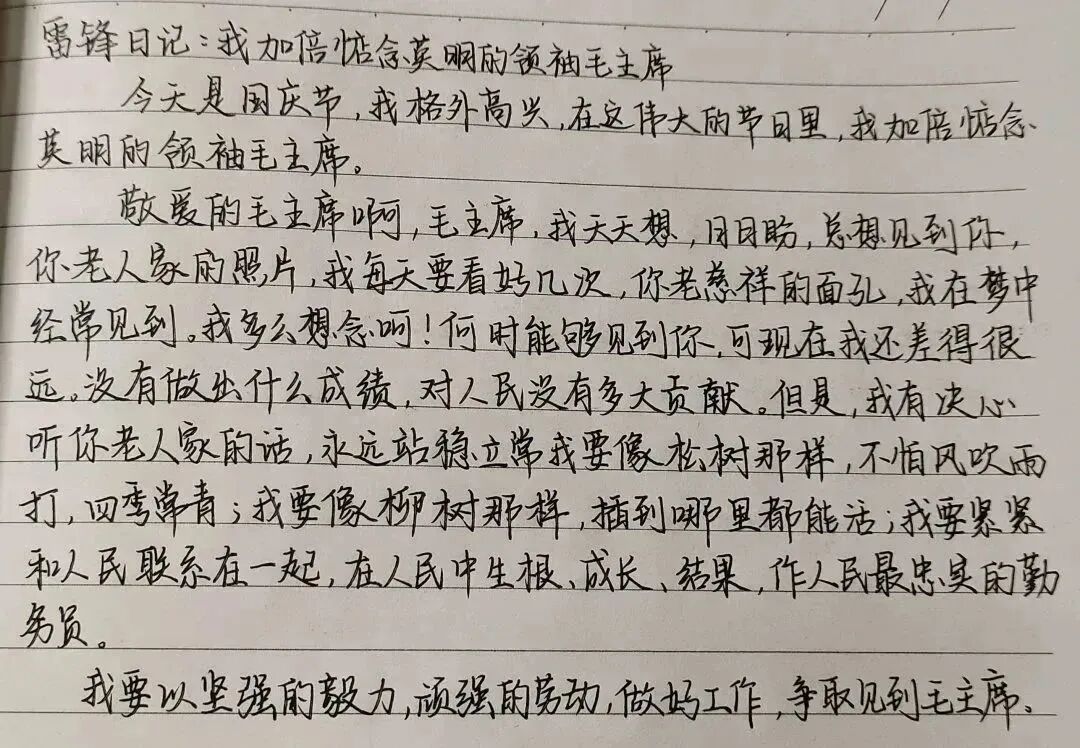 雷锋日记:我加倍惦念英明的领袖毛主席
今天是国庆节,我格外高兴,在这伟大的节日里,我加倍惦念
英明的领袖毛主席。
敬爱的毛主席啊,毛主席,我天天想,日日盼,总想见到你,
你老人家的照片,我每天要看好几次,你老慈祥的面孔,我在梦中
经常见到。我多么想念呵!何时能够见到你,可现在我还差得很
远。没有做出什么成绩,对人民没有多大贡献。但是,我有决心
听你老人家的话,永远站稳立常我要像松树那样,不怕风吹雨
打,四季常青;我要像柳树那样,插到哪里都能活;我要紧紧
和人民联系在一起,在人民中生根、成长、结果,作人民最忠实的勤
务员。
我要以坚强的毅力,顽强的劳动,做好工作,争取见到毛主席。